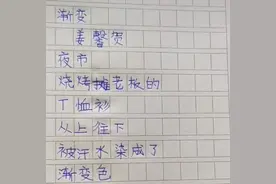 渐变
姜馨贺
夜市
烧烤摊老板的
T恤衫
从上往下
被汗水染成了
渐变色